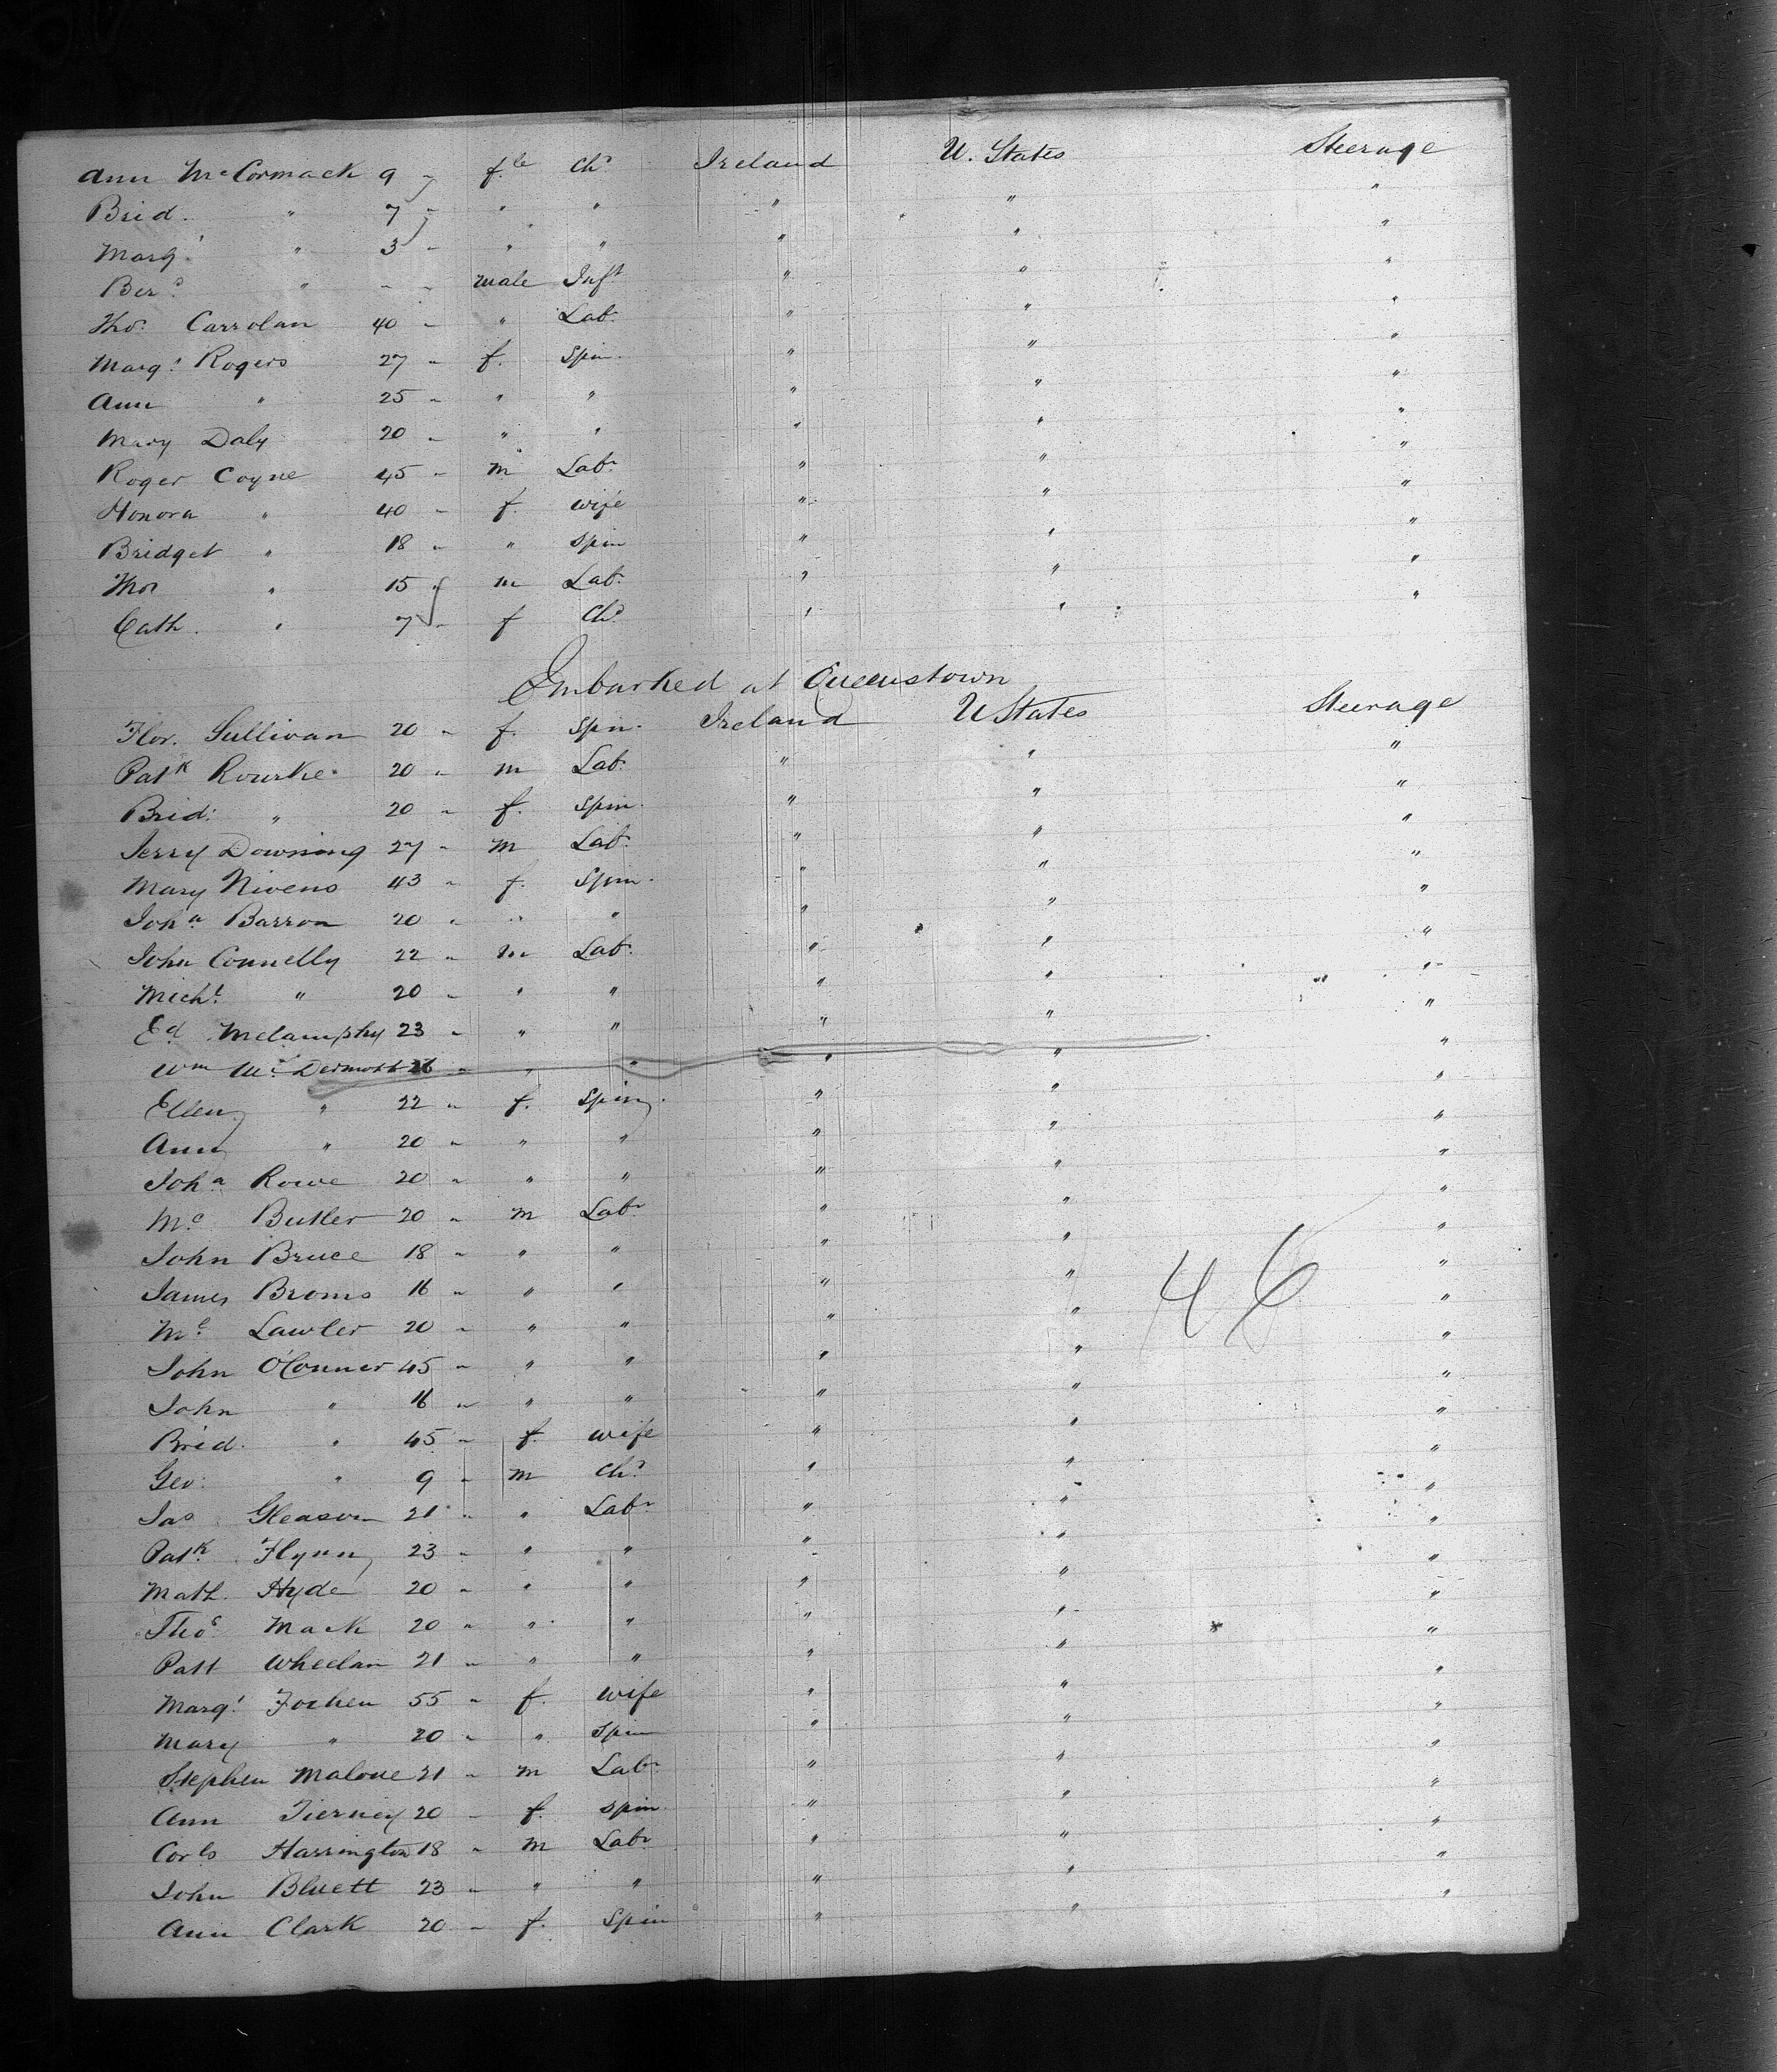 Ann McCormack 9 " f.le Ch.d Ireland U. States Steerage
Brid. " 7 " " " " " "
Marg.t " 3 " " " " " "
Ber.d " - - male Inf.t " " "
Tho.s Carrolan 40 " " Lab.r " " "
Marg.t Rogers 27 " f. Spin. " " "
Ann " 25 " " " " " "
Mary Daly 20 " " " " " "
Roger Coyne 45 " m Lab.r " " "
Honora " 40 " f. wife " " "
Bridget " 18 " " Spin " " "
Thos " 15 " m Lab.r " " "
Cath. " 7 " f Ch.d " " "
Embarked at Queenstown
Flor. Sullivan 20 " f. Spin. Ireland U States Steerage
Pat.k Rourke 20 " m Lab.r " " "
Brid: " 20 " f. Spin. " " "
Jerry Downing 27 " m Lab.r " " "
Mary Nivens 43 " f. Spin. " " "
Joh.a Barron 20 " " " " " "
John Connelly 22 " m Lab.r " " "
Mich.l " 20 " " " " " "
E.d Melamphy 23 " " " " " "
Wm McDermott 26 " " " " "
Ellen " 22 " f. Spin. " " "
Ann " 20 " " " " " "
Joh.a Rowe 20 " " " " " "
M.c Butler 20 " m Lab.r " " "
John Bruce 18 " " " " " "
James Broms 16 " " " " " "
46
M.c Lawler 20 " " " " " "
John O'Conner 45 " " " " " "
John " 16 " " " " " "
Brid. " 45 " f. wife " " "
Geo: " 9 " m Ch.d " " "
Jas Gleason 21 " " Lab.r " " "
Pat.k Flynn 23 " " " " " "
Math. Hyde 20 " " " " " "
Tho.s Mack 20 " " " " " "
Patt Wheelan 21 " " " " " "
Marg.t 55 " f. wife " " "
Mary " 20 " " Spin " " "
Stephen Malone 21 " m Lab.r " " "
Ann Tierney 20 " f. spin. " " "
Corls Harrington 18 " m Lab.r " " "
John Bluett 23 " " " " " "
Ann Clark 20 " f. Spin " " "